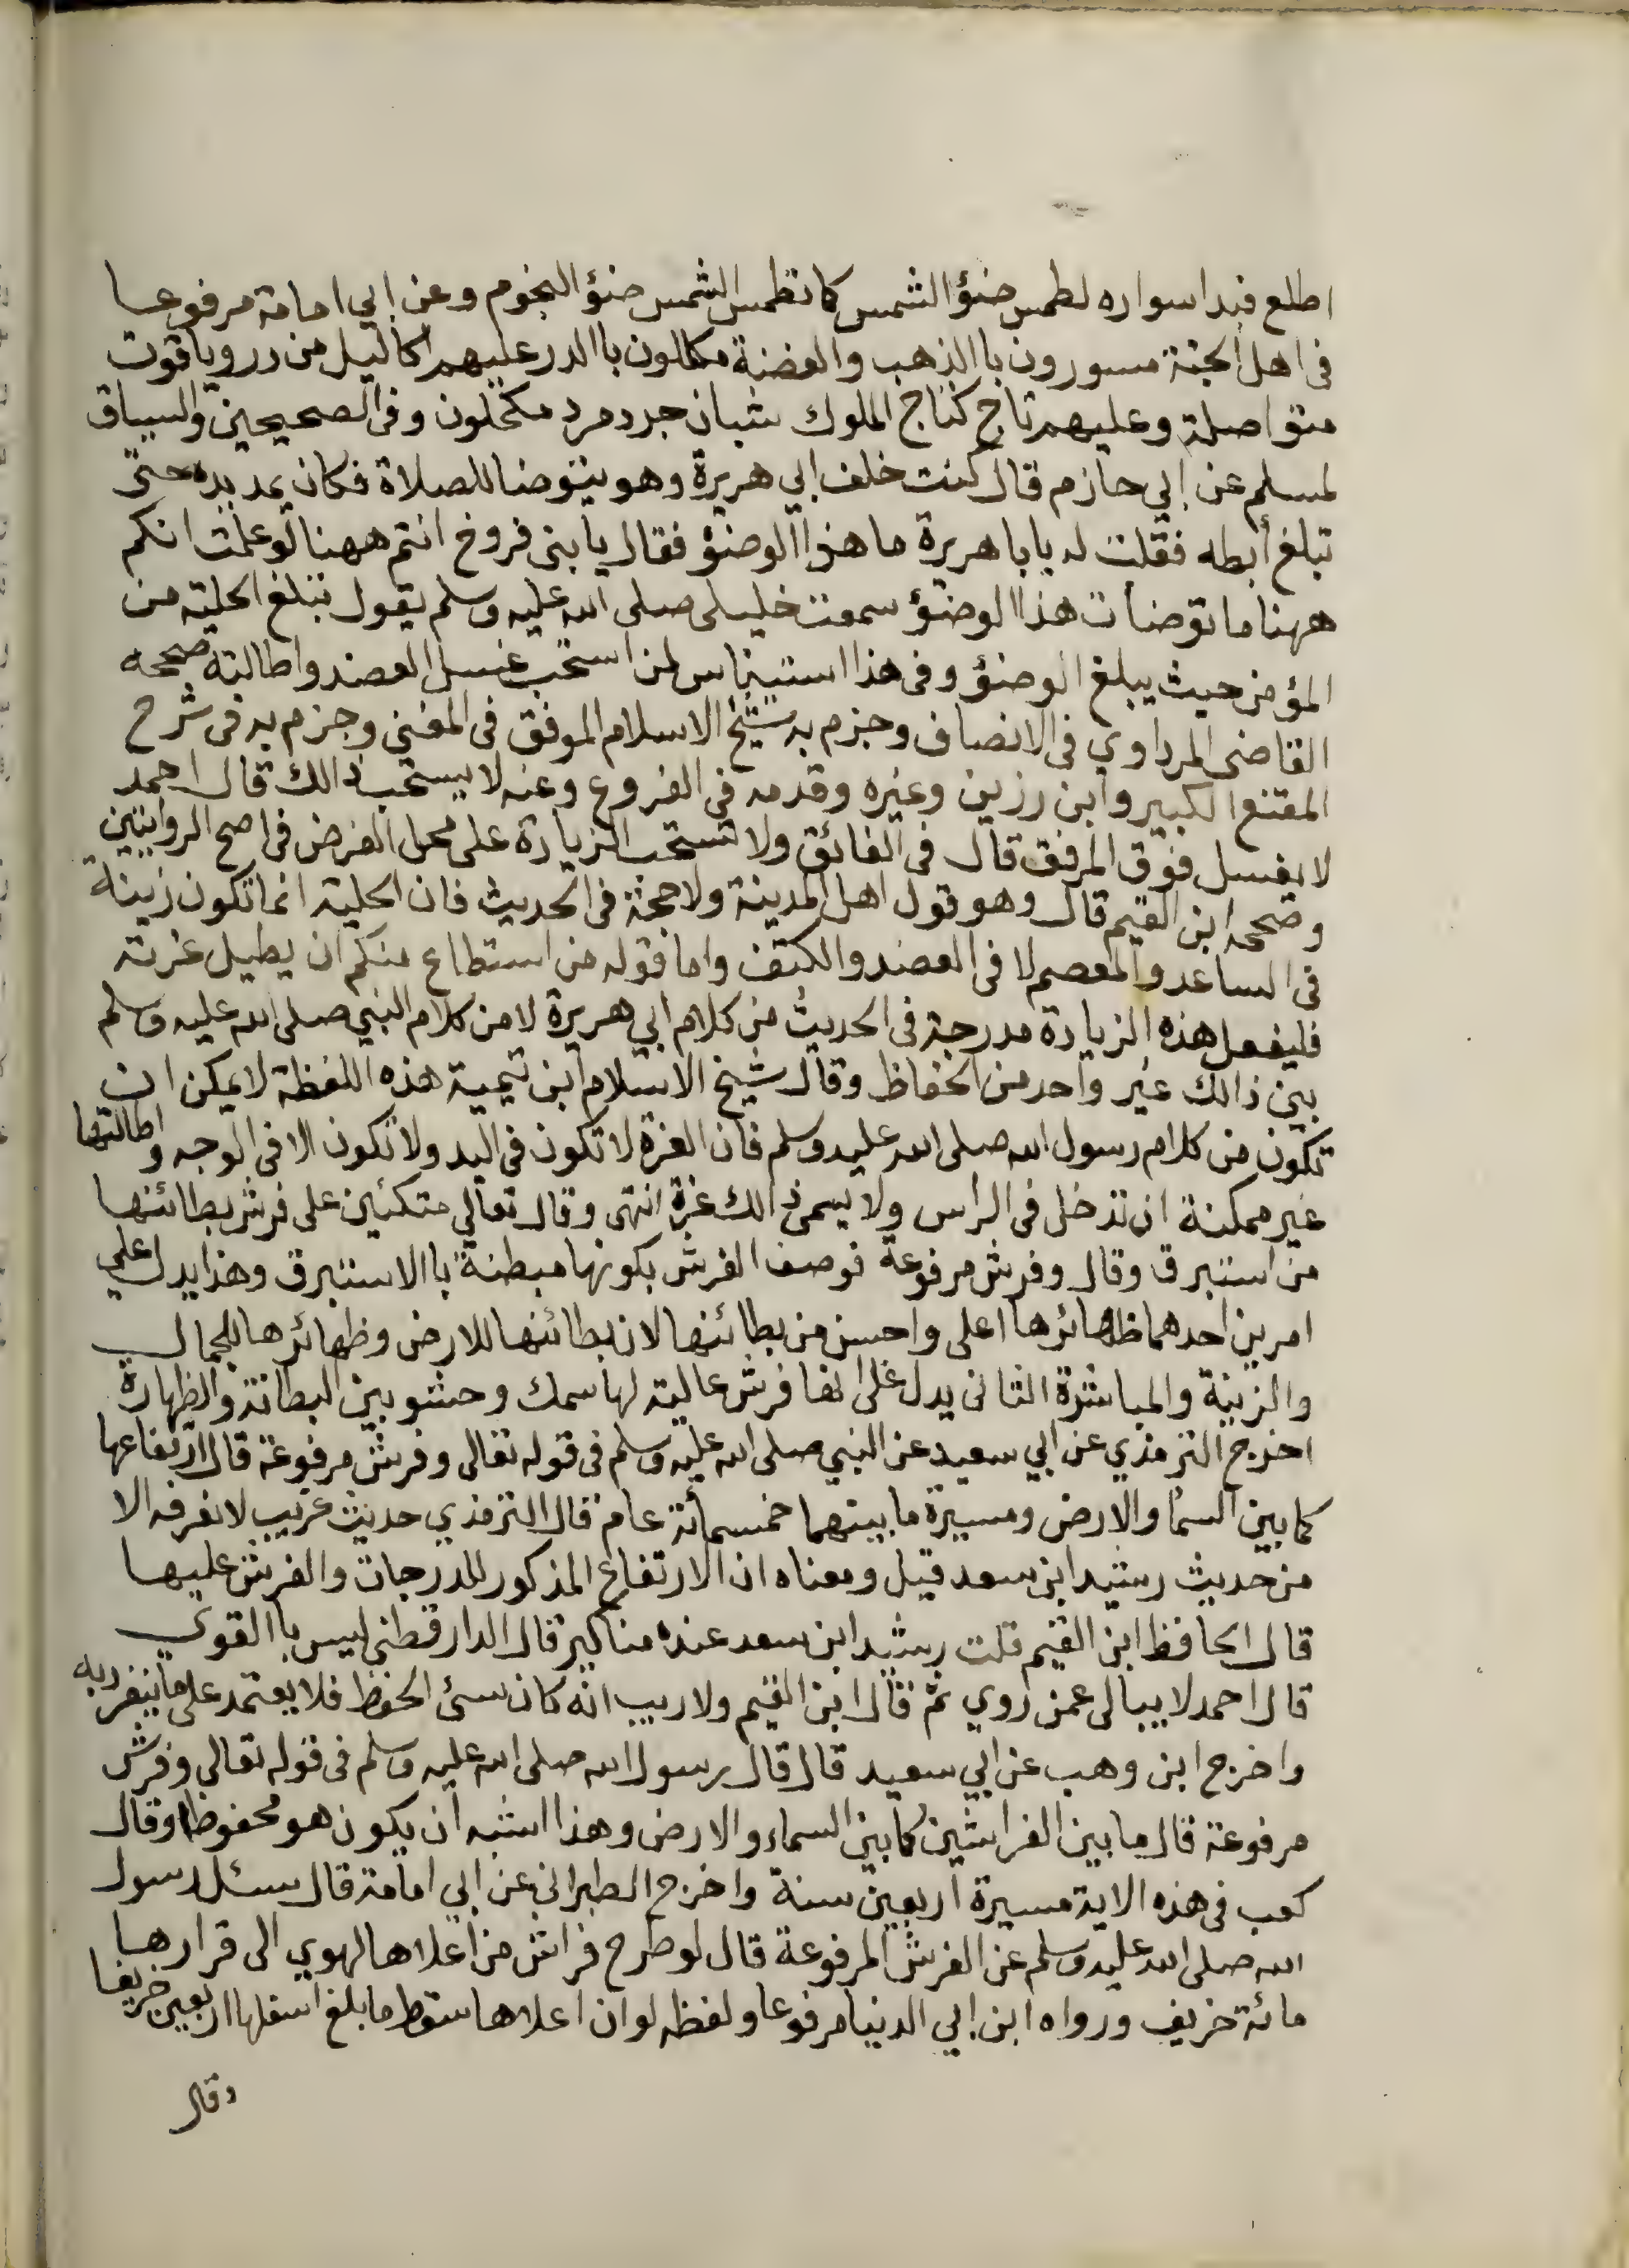 اطلع فبدا سواره لطمس ضؤ الشمس كما تطمس الشمس ضؤ النجوم وعن ابي امامة مرفوعا
في اهل الجنة مسورون باالذهب والفضة مكللون باالدر عليهم اكاليل من در وياقوت
متواصلة وعليهم تاج كتاج الملوك شبان جرد مرد مكحلون وفي الصحيحين والسياق
لمسلم عن ابي حازم قال كنت خلف ابي هريرة وهو يتوضا للصلاة فكان يمد يده حتى
تبلغ أبطه فقلت له يابا هريرة ما هذا الوضؤ فقال يابني فروخ انتم ههنا لو علمت انكم
ههنا ما توضأت هذا الوضؤ سمعت خليلي صلى الله عليه وسلم يقول تبلغ الحلية من
المؤمن حيث يبلغ الوضؤ وفي هذا استيناس لمن استحب غسل العضد واطالته صححه
القاضى المرداوي في الانصاف وجزم به شيخ الاسلام الموفق في المغني وجزم به في شرح
المقنع الكبير وابن رزين وغيره وقدمه في الفروع وعنه لا يستحب ذالك قال احمد
لا يغسل فوق المرفق قال في الفائق ولا تستحب الزيادة على محل الفرض في اصح الروايتين
وصححه ابن القيم قال وهو قول اهل المدينة ولا حجة في الحديث فان الحلية انما تكون زينة
في الساعد والمعصم لا في العضد والكتف واما قوله من استطاع منكم ان يطيل غرته
فليفعل هذه الزيادة مدرجة في الحديث من كلام ابي هريرة لا من كلام النبي صلى الله عليه وسلم
بين ذالك غير واحد من الحفاظ وقال شيخ الاسلام ابن تيمية هذه اللفظة لا يمكن ان
تكون من كلام رسول الله صلى الله عليه وسلم فان الغرة لا تكون في اليد ولا تكون الا في الوجه واطالتها
غير ممكنة ان تدخل في الراس ولا يسمى ذالك غرة انتهى وقال تعالى متكئين على فرش بطائنها
من استبرق وقال وفرش مرفوعة فوصف الفرش بكونها مبطنة باالاستبرق وهذا يدل على
امرين احدهما ظهائرها اعلى واحسن من بطائنها لان بطائنها للارض وظهائرها للجمال
والزينة والمباشرة الثاني يدل على انها فرش عالية لها سمك وحشو بين البطانة والظهارة
اخرج الترمذي عن ابي سعيد عن النبي صلى الله عليه وسلم في قوله تعالى وفرش مرفوعة قال ارتفاعها
كما بين السما والارض ومسيرة ما بينهما خمسمائة عام قال الترمذي حديث غريب لا نعرفه الا
من حديث رشيد ابن سعد قيل ومعناه ان الارتفاع المذكور للدرجات والفرش عليها
قال الحافظ ابن القيم قلت رشيد ابن سعد عنده مناكير قال الدارقطني ليس باالقوي
قال احمد لا يبالي عمن روي ثم قال ابن القيم ولا ريب انه كان سئ الحفظ فلا يعتمد على ما ينفرد به
واخرج ابن وهب عن ابي سعيد قال قال رسول الله صلى الله عليه وسلم في قوله تعالى وفرش
مرفوعة قال ما بين الفراشين كما بين السماء والارض وهذا اشبه ان يكون هو محفوظا وقال
كعب في هذه الاية مسيرة اربعين سنة واخرج الطبراني عن ابي امامة قال سئل رسول
الله صلى الله عليه وسلم عن الفرش المرفوعة قال لو طرح فراش من اعلاها لهوي الى قرارها
مائة خريف ورواه ابن ابي الدنيا مرفوعا ولفظه لو ان اعلاها سقط ما بلغ اسفلها اربعين خريفا
وقال